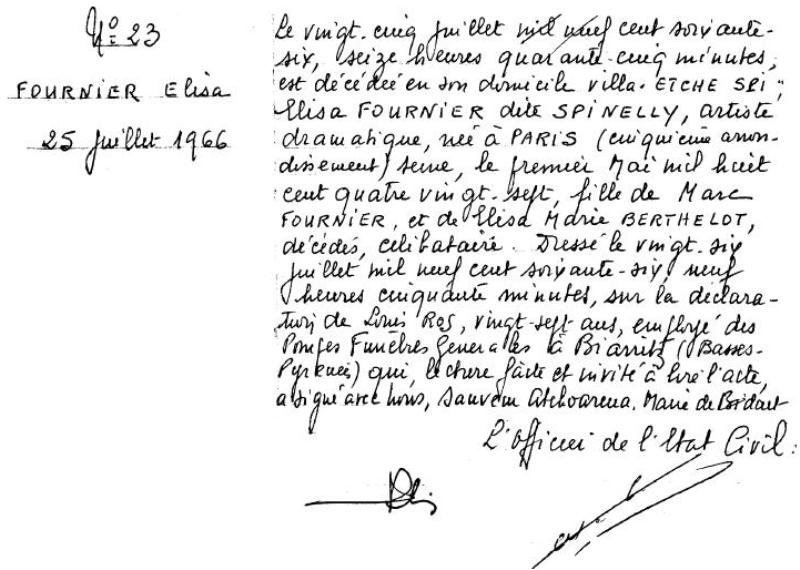 Nº 23
FOURNIER Elisa
25 juillet 1966
Le vingt-cinq juillet mil neuf cent soixante-
six, seize heures quarante-cinq minutes,
est décédée en son domicile villa "ETCHE SPI",
Elisa FOURNIER dite SPINELLY, artiste
dramatique, née à PARIS (cinquième arron-
dissement) Seine, le premier Mai mil huit
cent quatre vingt-sept, fille de Marc
FOURNIER, et de Elisa Marie BERTHELOT,
décédés, célibataire. Dressé le vingt-six
juillet mil neuf cent soixante-six, neuf
heures cinquante minutes, sur la déclara-
tion de Louis Ros, vingt-sept ans, employé des
Pompes Funèbres Générales à Biarritz (Basses-
Pyrénées) qui, lecture faite et invité à lire l'acte,
a signé avec nous, Sauveur Atchoarena, Maire de Bidart
L'Officier de l'Etat Civil :